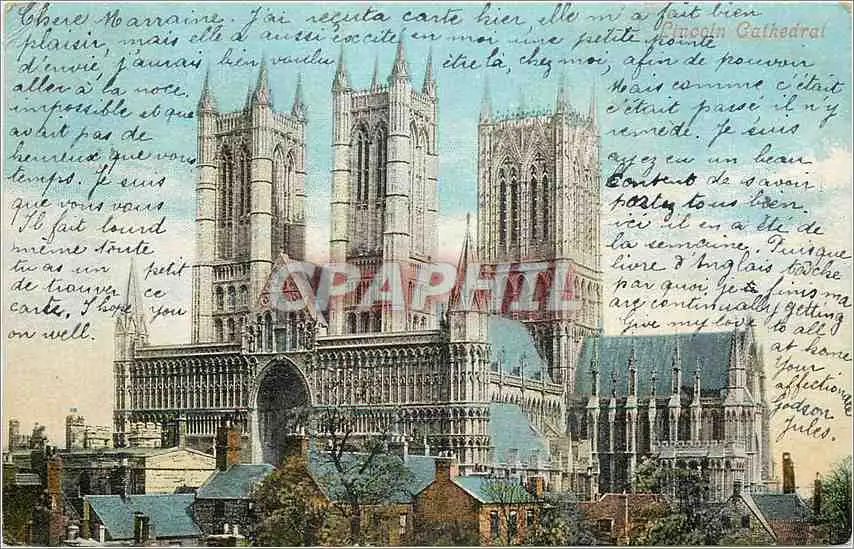 Chere Marraine. J'ai reçu ta carte hier elle m'a fait bien
Lincoln Cathedral
plaisir, mais elle a aussi excité en moi une petite pointe
d'envie, j'aurais bien voulu être là, chez moi, afin de pouvoir
aller à la noce. Mais comme c'était
impossible et que c'était passé il n'y
avait pas de remède. Je suis
heureux que vous ayez eu un beau
temps. Je suis content de savoir
que vous vous portez tous bien.
Il fait lourd ici il en a été de
même toute la semaine. Puisque
tu as un petit livre d'Anglais tâche
de trouver ce par quoi je te finis ma
carte. I hope you are continually getting
on well. Give my love to all
at home
Your
affectionate
Godson
Jules.
CARTAPHIL